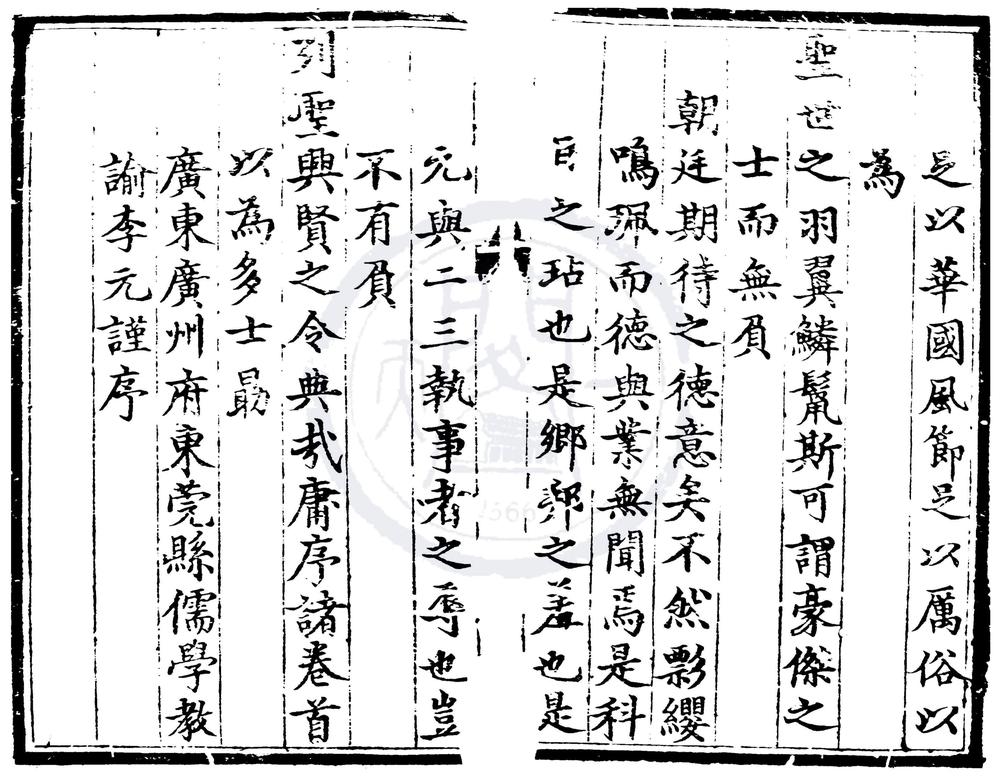 足以華國風節足以厲俗以
為
聖世之羽翼鱗鬣斯可謂豪傑之
士而無負
朝廷期待之德意矣不然影纓
鳴珮而德與業無聞焉是科
目之玷也是鄉邦之羞也是
元與二三執事者之辱也豈
不有負
列聖興賢之令典哉庸序諸卷首
以為多士勗
廣東廣州府東莞縣儒學教
諭李元謹序